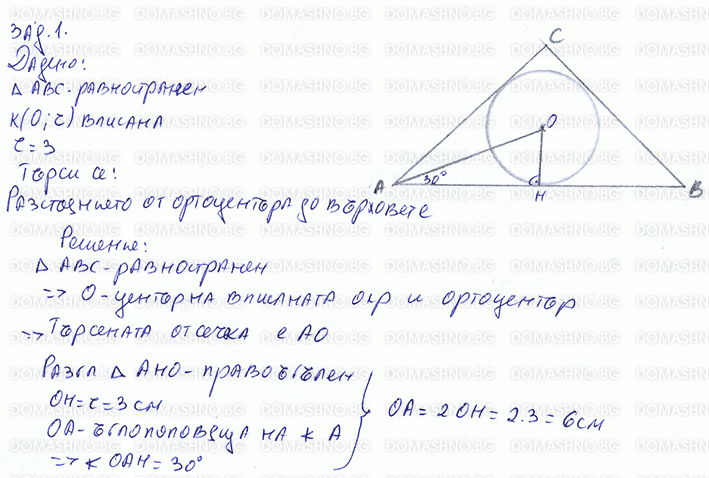 Зад.1.
Дадено:
△ ABC - равностранен
k(O; r) вписана
r = 3
Търси се:
Разстоянието от ортоцентъра до върховете
Решение:
△ ABC - равностранен
=> O - център на вписаната окр и ортоцентър
=> Търсената отсечка е AO
Разгл △ AHO - правоъгълен
OH = r = 3 см
OA - ъглополовяща на ∢ A
=> ∢ OAH = 30°
OA = 2 OH = 2.3 = 6 см
C
O
A
30°
H
B
DOMASHNO.BG